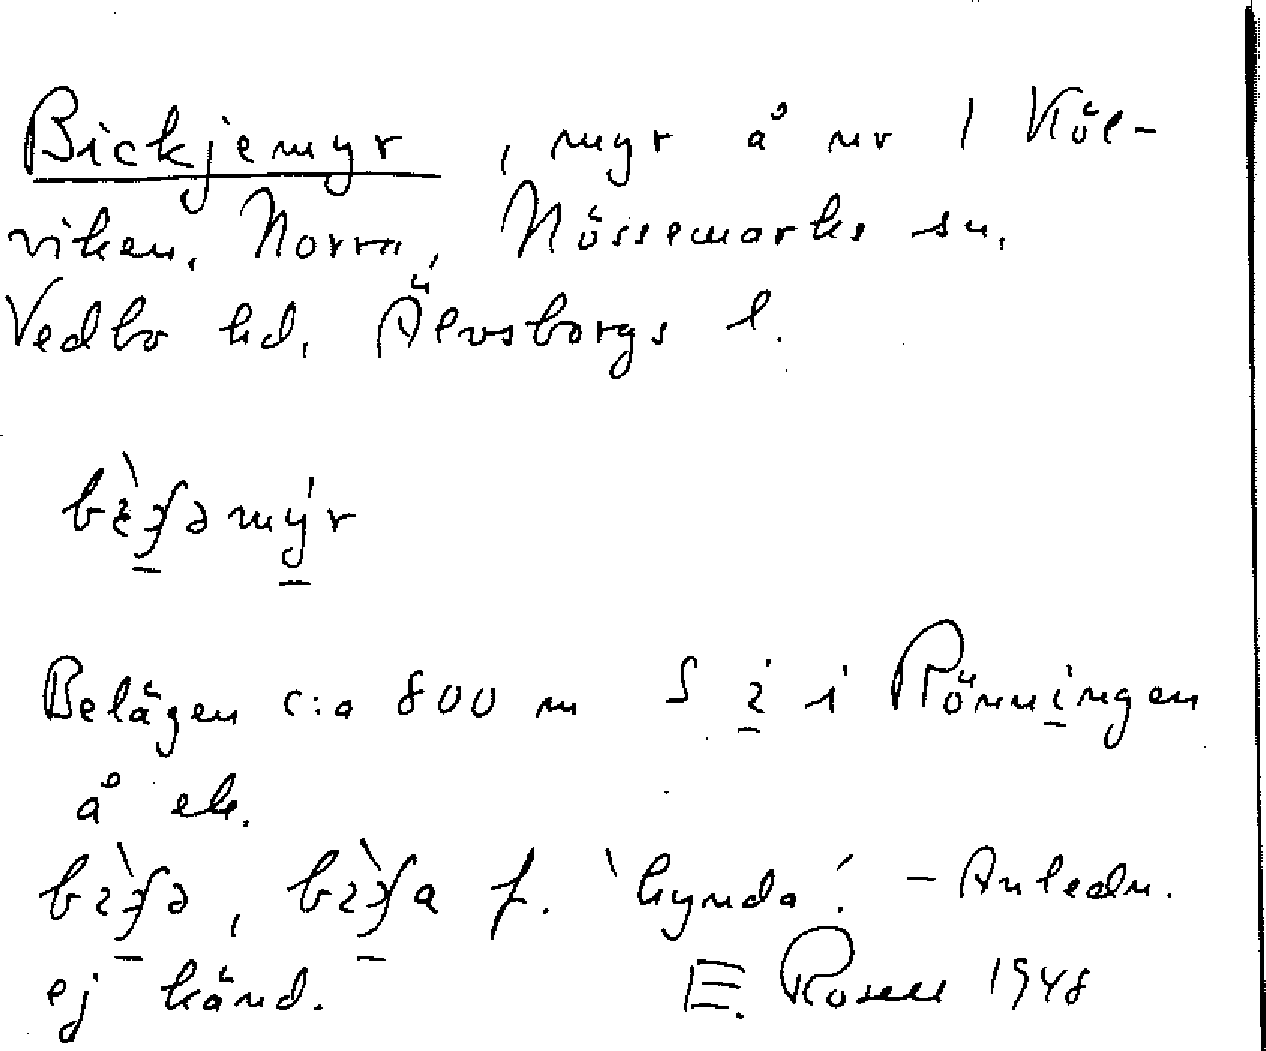 Bickjemyr, myr å nr 1 Köl-
viken, Norra, Nössemarks sn,
Vedbo hd, Älvsborgs l.
Belägen c:a 800 m S i i Rönningen
å ek.
f. 'hynda'. - Anledn.
ej känd. E. Rosell 1948